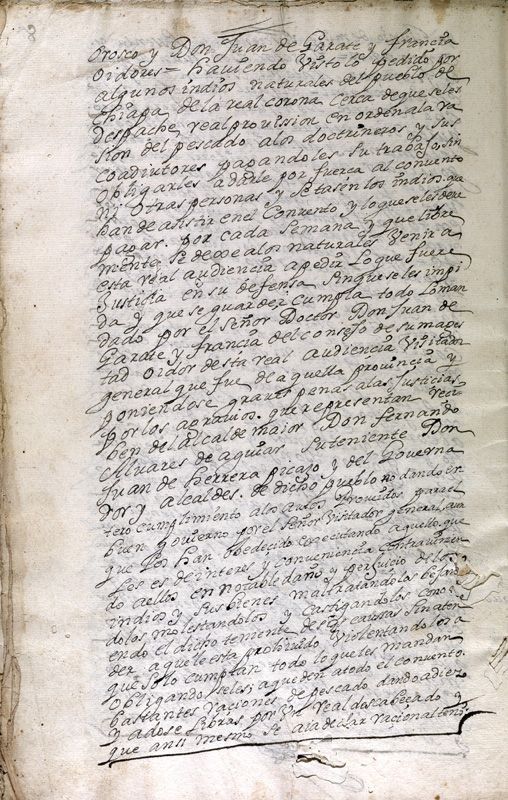 Orosco y Don Juan de Garate y francia
oidores = haviendo visto lo pedido por
algunos indios naturales del pueblo de
chiapa de la real corona cerca de que seles
despache real provission en orden a la ra
sion del pescado alos doctrineros y sus
coadiutores pagandoles su trabajo sin
obligarles a darle por fuerça al convento
ni otras personas y se tasen los indios que
han de asistir en el convento y lo que seles deve
pagar por cada semana y que libre
mente se dexe alos naturales venir a
esta real audiencia a pedir lo que fuere
Justicia en su defensa sin que seles impi
da y que se guarde y cumpla todo lo man
dado por el señor Doctor Don Juan de
Garate y francia del consejo de su mages
tad oidor desta real audiencia visitador
general que fue de aquella provincia y
poniendose graves penas alas Justicias
por los agravios que representan reci
ben del alcalde maior Don fernando
Alvares de aguiar su teniente Don
Juan de herrera picazo y del Governa
dor y alcaldes de dicho pueblo no dando en
tero cumplimiento alos autos proveidos para el
buen govierno por el señor visitador general aun
que los han obedecido executando aquello que
les es de interes y conveniencia contravinien
do a ello en notable daño y perjuicio delos
indios y sus bienes maltratandolos bejan
dolos molestandolos y castigandolos conosi
endo el dicho teniente de sus causas sin aten
der a que le esta prohivido violentandolos a
que solo cumplan todo lo que les mandan
obligandoseles a que den a todo el convento
bastantes raciones de pescado dando a diez
y a dose libras por un real descabeçado y
que ansi mesmo se aia de dar racion al teni